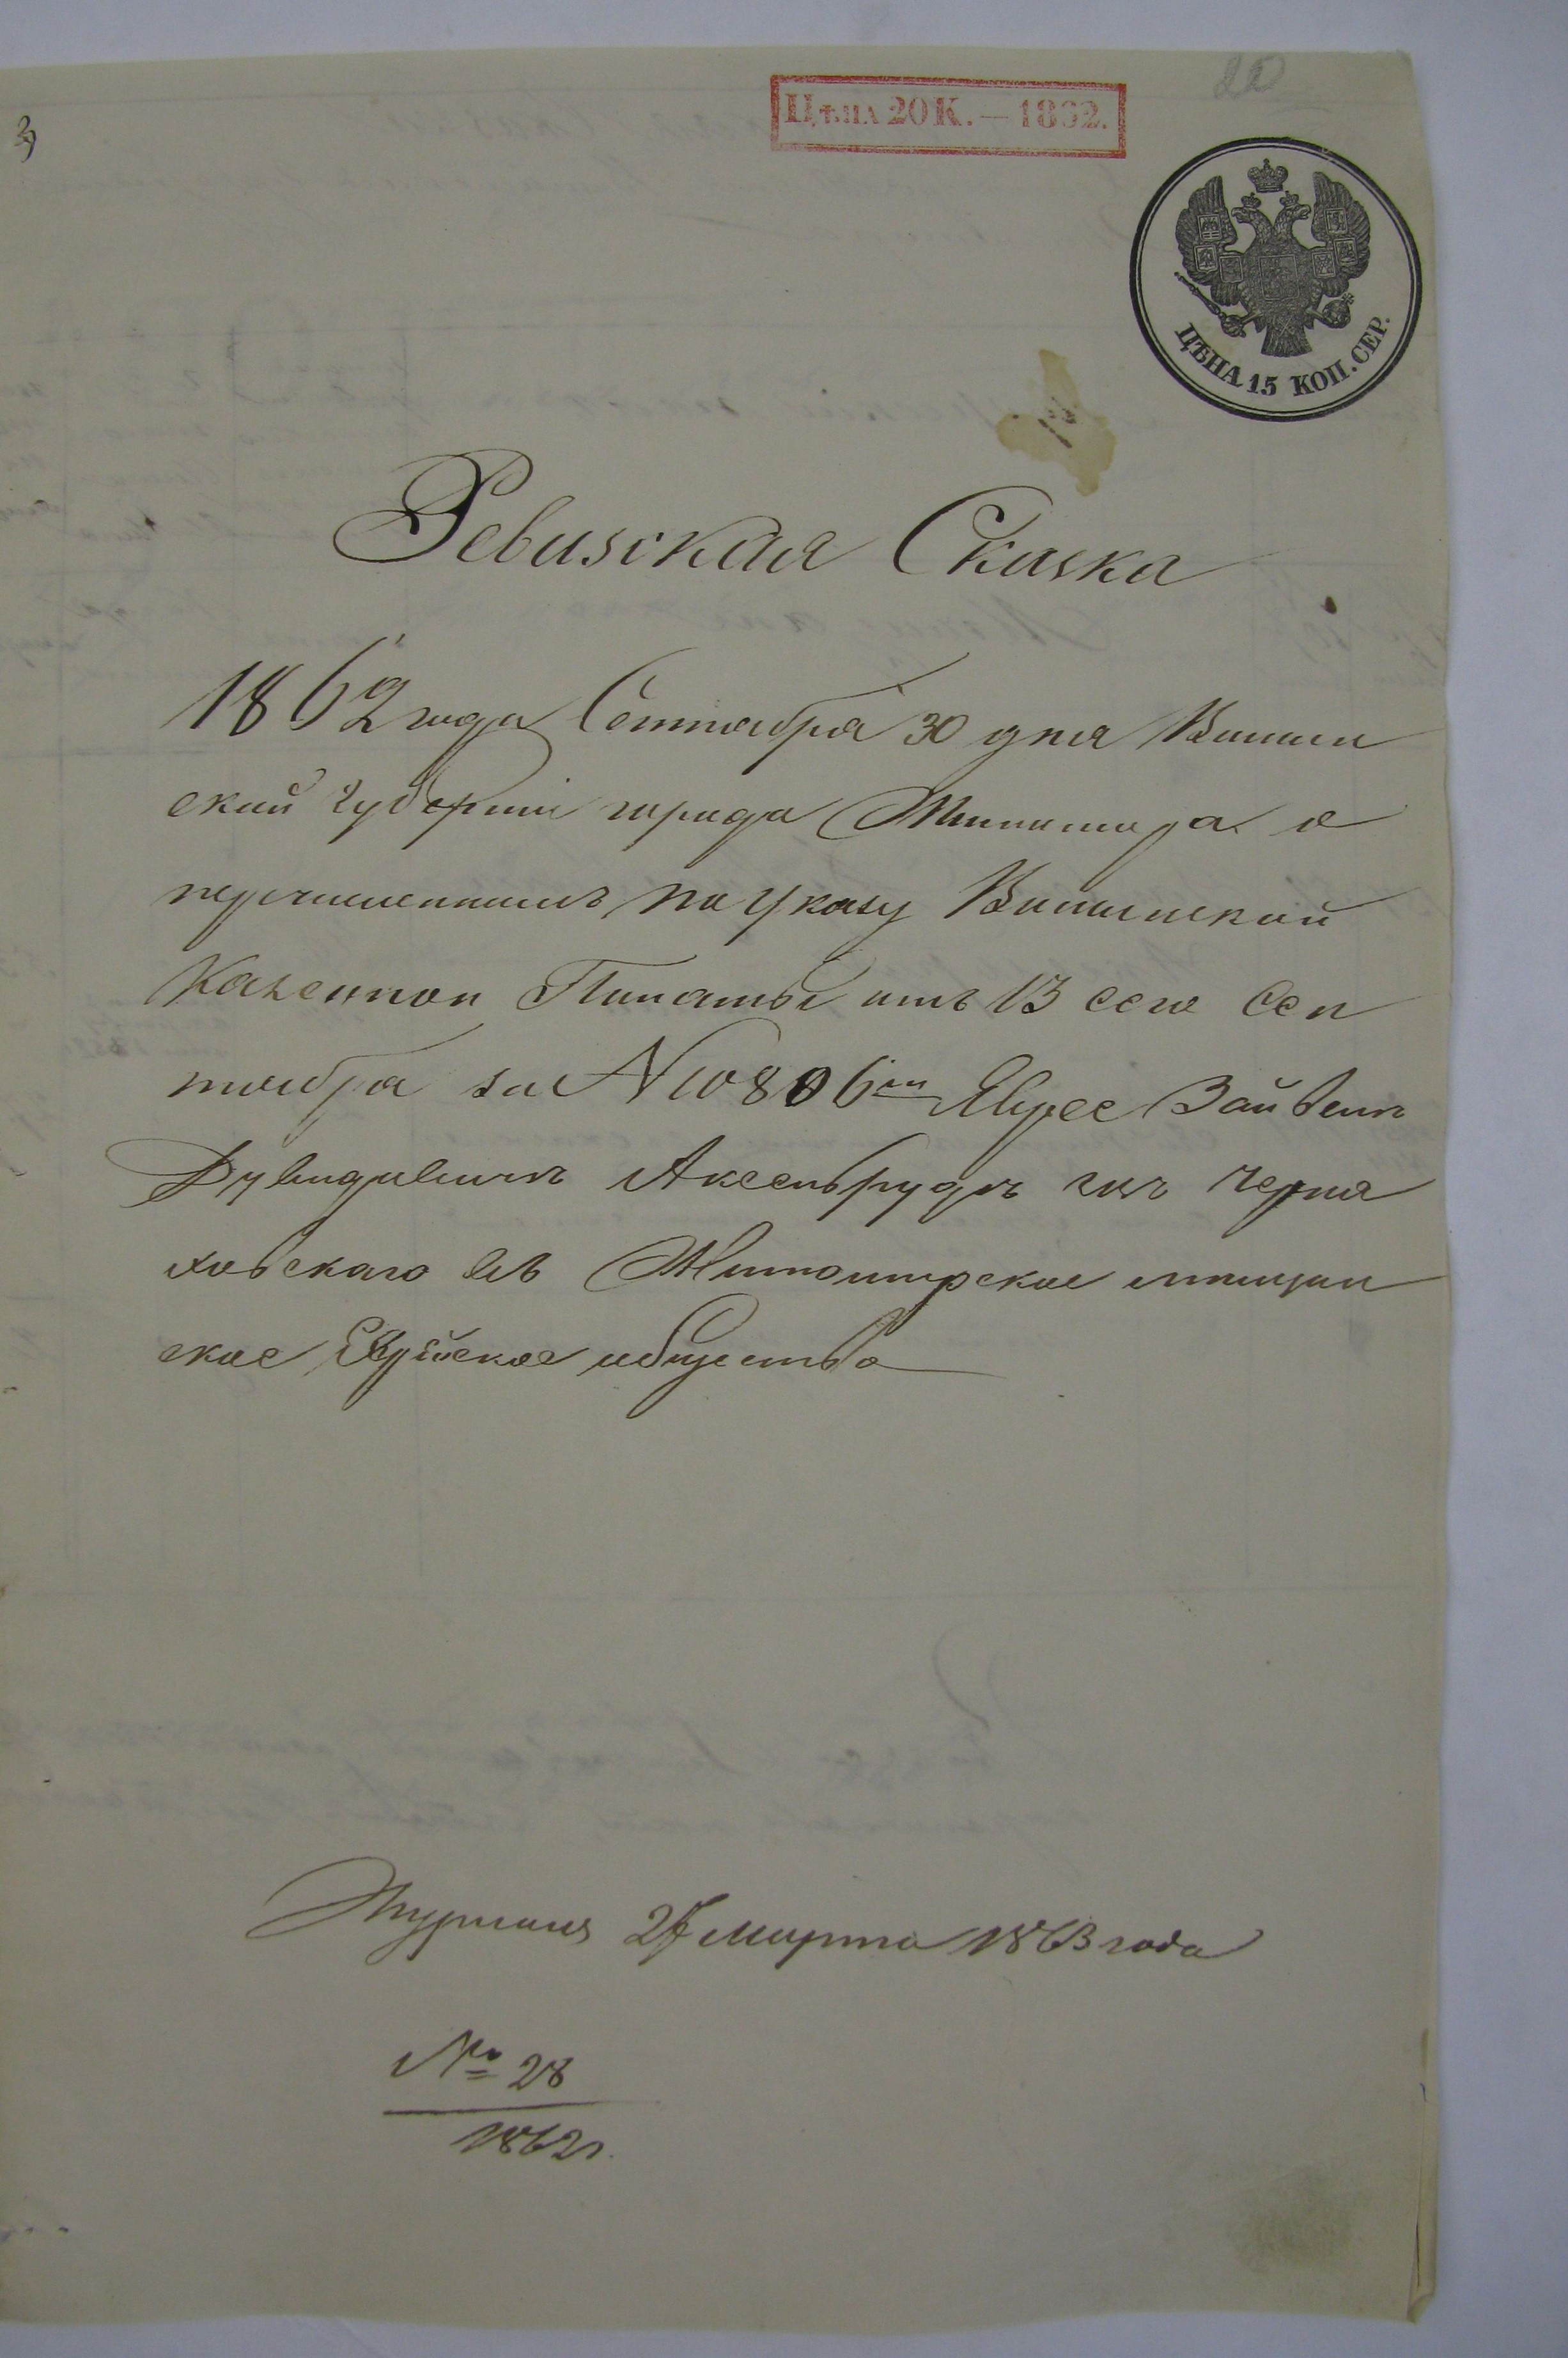 22
Цѣна 20 К. — 1862.
3
ЦѢНА 15 КОП. СЕР.
Ревизская Сказка
1862 года Сентября 30 дня Волын
ской губерніи города Житомира о
перечисленномъ по Указу Волынской
Казенной Палаты отъ 13 сего Сен
тября за N 10806 Евреѣ Зайвелѣ
Дувидовичѣ Аксельрудѣ изъ Черня
ховскаго въ Житомирское мѣщан
ское Еврейское общество
27 Марта 1863 года
№ 28
1862 г.